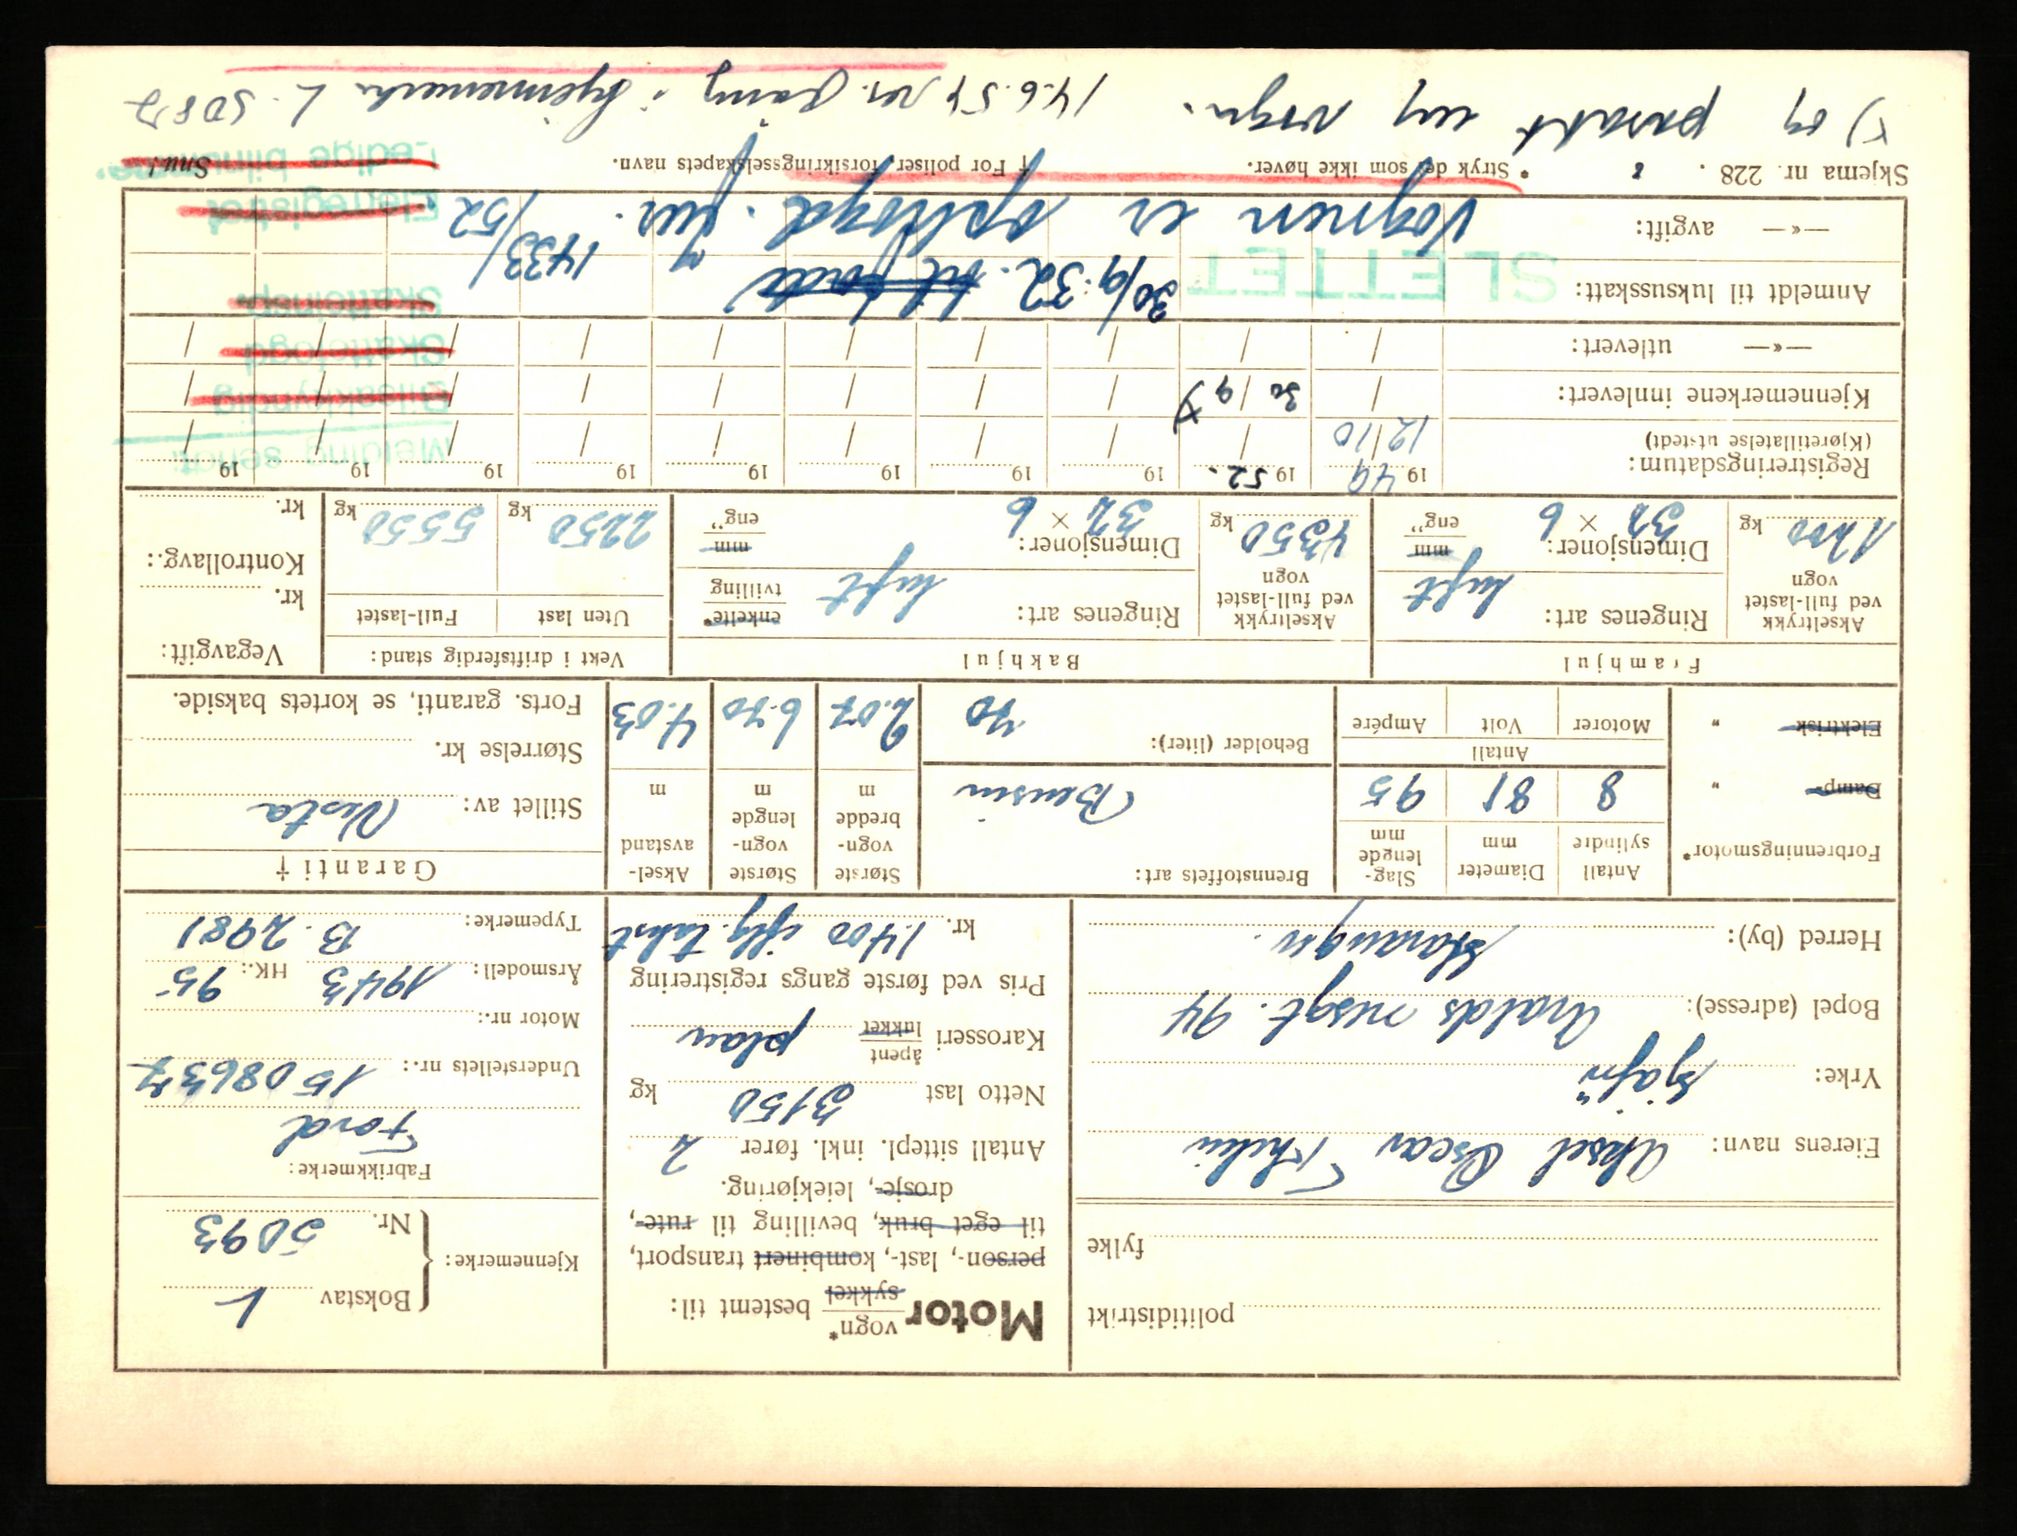 politidistrikt
fylke
Eierens navn: Aksel Oscar Thelin
Yrke: sjåfør
Bopel (adresse): Haralds resgt. 94
Herred (by): Stavanger.
Motor vogn* sykkel bestemt til:
person-, last-, kombinert transport,
til eget bruk, bevilling til rute-,
drosje-, leiekjøring.
Antall sittepl. inkl. fører 2
Netto last 3150 kg
Karosseri åpent lukket plan
Pris ved første gangs registrering
kr. 1400 iflg. takst
Kjennemerke: Bokstav L
Nr. 5093
Fabrikkmerke:
Ford
Understellets nr.: 1508637
Motor nr.:
Årsmodell: 1943 HK.: 95
Typemerke: B. 2981
Forbrenningsmotor*
Damp- "
Elektrisk "
Antall sylindre 8
Diameter mm 81
Slag-lengde mm 95
Antall
Motorer Volt Ampére
Brennstoffets art: Bensin
Beholder (liter): 70
Største vogn-bredde m 2.07
Største vogn-lengde m 6.70
Aksel-avstand m 4.03
Garanti †
Stillet av: Vesta
Størrelse kr.
Forts. garanti, se kortets bakside.
Framhjul
Akseltrykk ved full-lastet vogn 1200 kg
Ringenes art: luft
Dimensjoner: 32 × 6 mm eng"
Bakhjul
Akseltrykk ved full-lastet vogn 4350 kg
Ringenes art: luft enkelte* tvilling
Dimensjoner: 32 × 6 mm eng"
Vekt i driftsferdig stand:
Uten last Full-lastet
2250 kg 5550 kg
Vegavgift:
kr.
Kontrollavg.:
kr.
Registreringsdatum: (Kjøretillatelse utstedt) 1949 1952. 19 19 19 19 19 19 19
12/10
Kjennemerkene innlevert: 30/9 x)
—«— utlevert:
Anmeldt til luksusskatt:
—«— avgift:
SLETTET
30/9.52. til
Vognen er ophogd. Jnr. 1433/52
Melding sendt:
Bilsakkyndig
Skattefogd
Skatteinsp.
Eierregistret
Ledige bilnumre.
Skjema nr. 228. * Stryk det som ikke høver. † For poliser, forsikringsselskapets navn. Snu!
x) og påsatt ny vogn. 14.6.54 kjennemerke L.